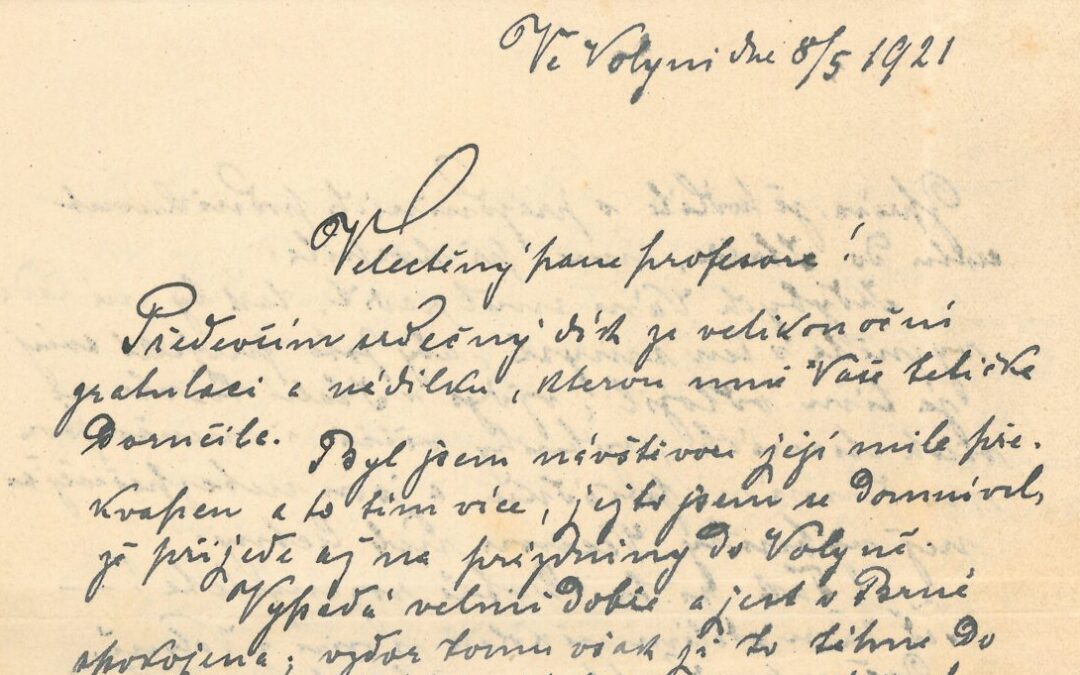 Ve Volyni dne 8/5 1921
Velectěný pane profesore!
Předevčím srdečný dík za velikonoční
gratulaci a nádilku, kterou mně Vaše tetička
Doručila.
Byl jsem návštivou její mile pře-
kvapen a to tím více, jejto jsem se domníval,
že přijede až na prázdniny do Volyně.
Vypadá velmi dobře a jest v Brně
spokojena; vzdor tomu však ji to táhne do